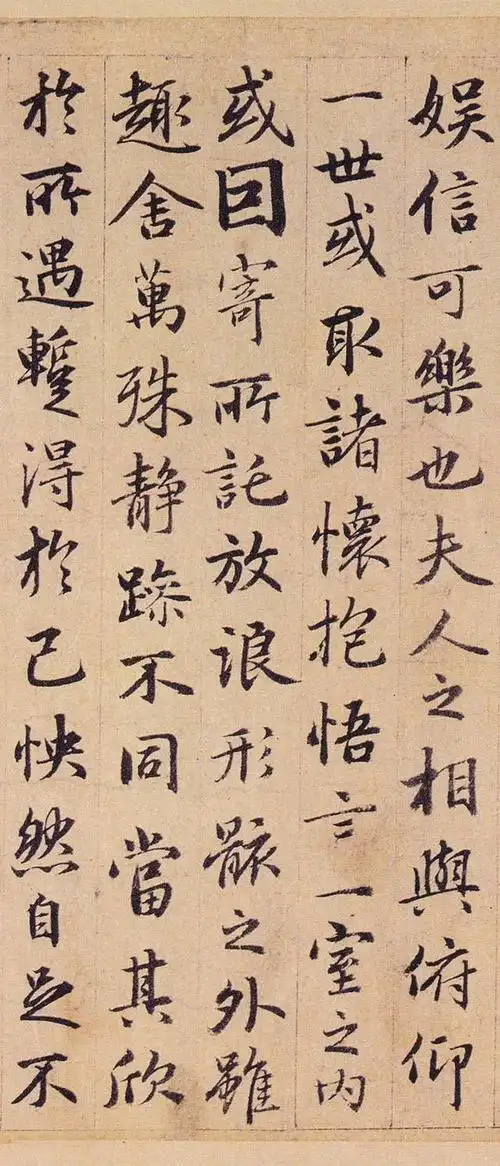 娯信可樂也夫人之相與俯仰
一世或取諸懷抱悟言一室之内
或因寄所託放浪形骸之外雖
趣舍萬殊静躁不同當其欣
於所遇蹔得於己怏然自足不